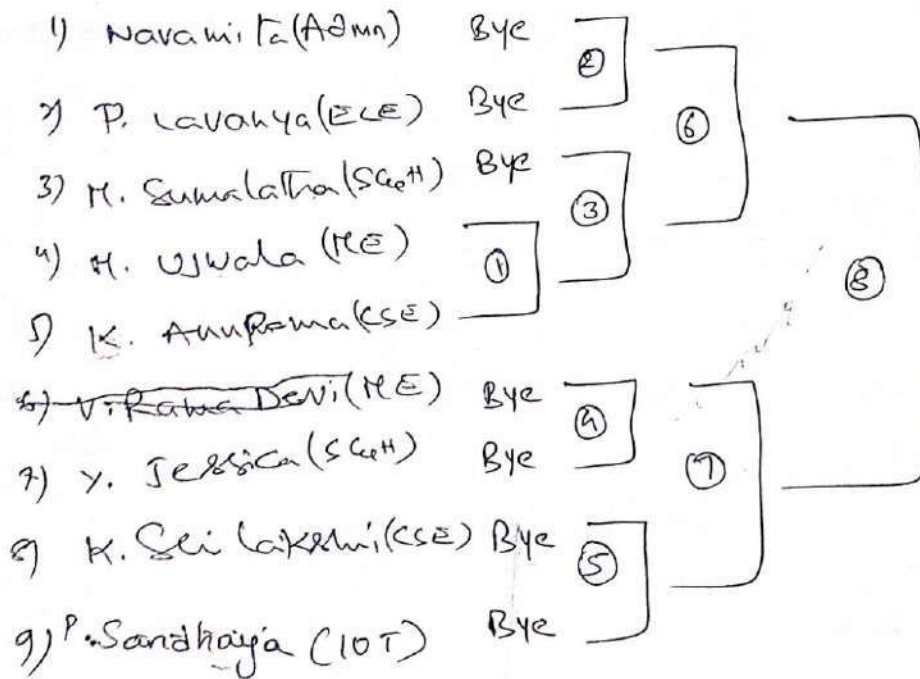 1) Navamita (Admn) Bye
②
2) P. Lavanya (ECE) Bye
⑥
3) M. Sumalatha (S&H) Bye
③
4) M. Ujwala (ME)
①
⑧
5) K. AnuRama (CSE)
6) V. Rama Devi (ME) Bye
④
7) Y. Jessica (S&H) Bye
⑦
8) K. Sri Lakshmi (CSE) Bye
⑤
9) P. Sandhaya (IOT) Bye